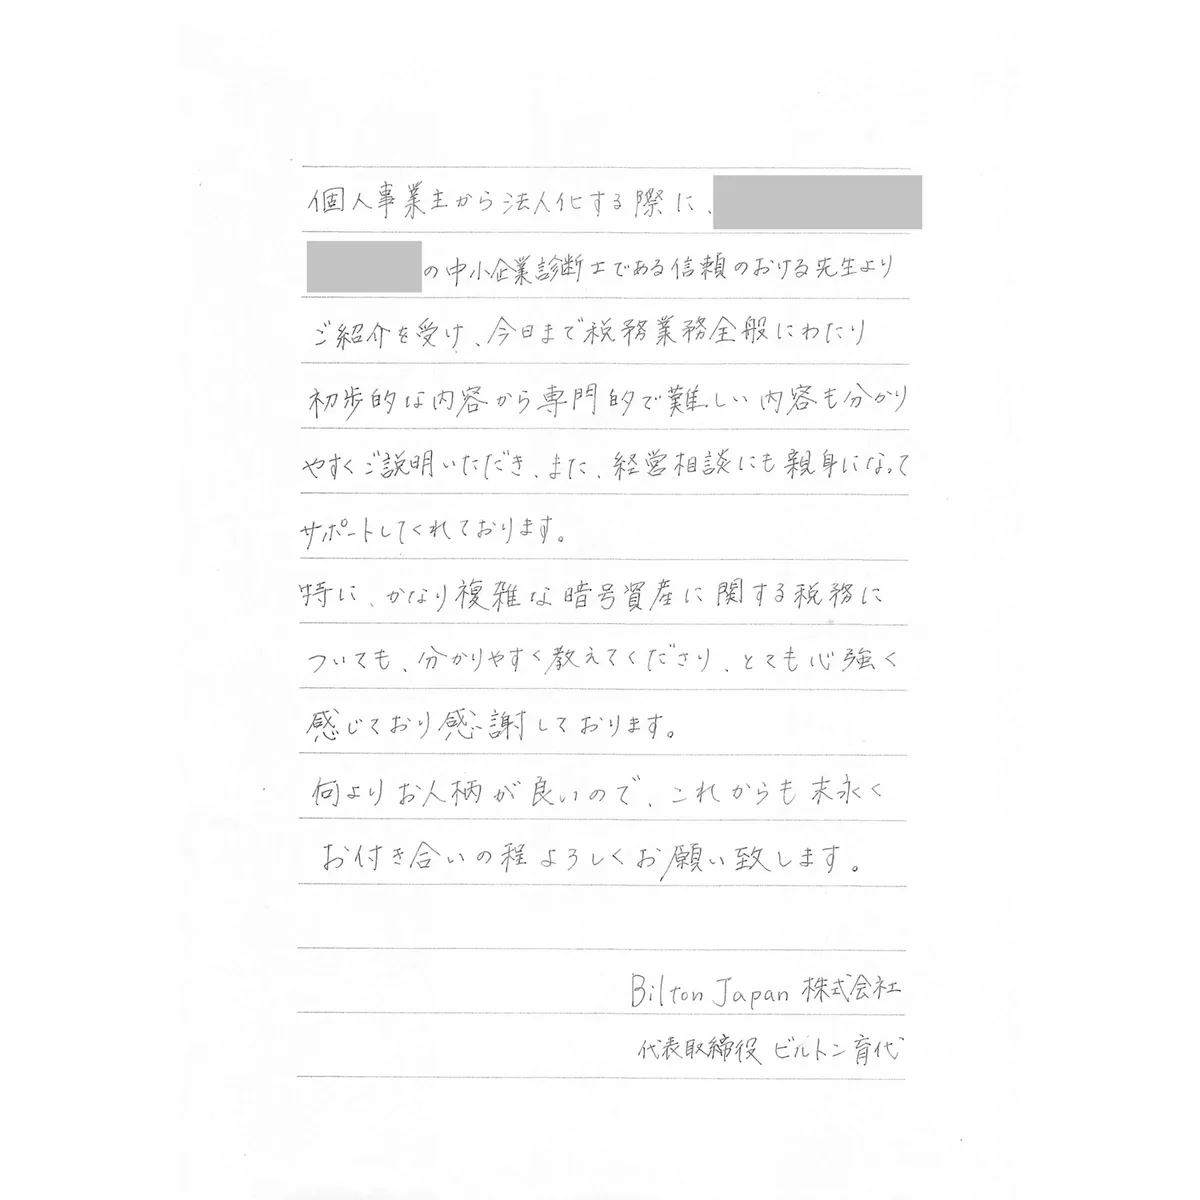 個人事業主から法人化する際に、
の中小企業診断士である信頼のおける先生より
ご紹介を受け、今日まで税務業務全般にわたり
初歩的な内容から専門的で難しい内容も分かり
やすくご説明いただき、また、経営相談にも親身になって
サポートしてくれております。
特に、かなり複雑な暗号資産に関する税務に
ついても、分かりやすく教えてくださり、とても心強く
感じており感謝しております。
何よりお人柄が良いので、これからも末永く
お付き合いの程よろしくお願い致します。
Bilton Japan 株式会社
代表取締役 ビルトン育代